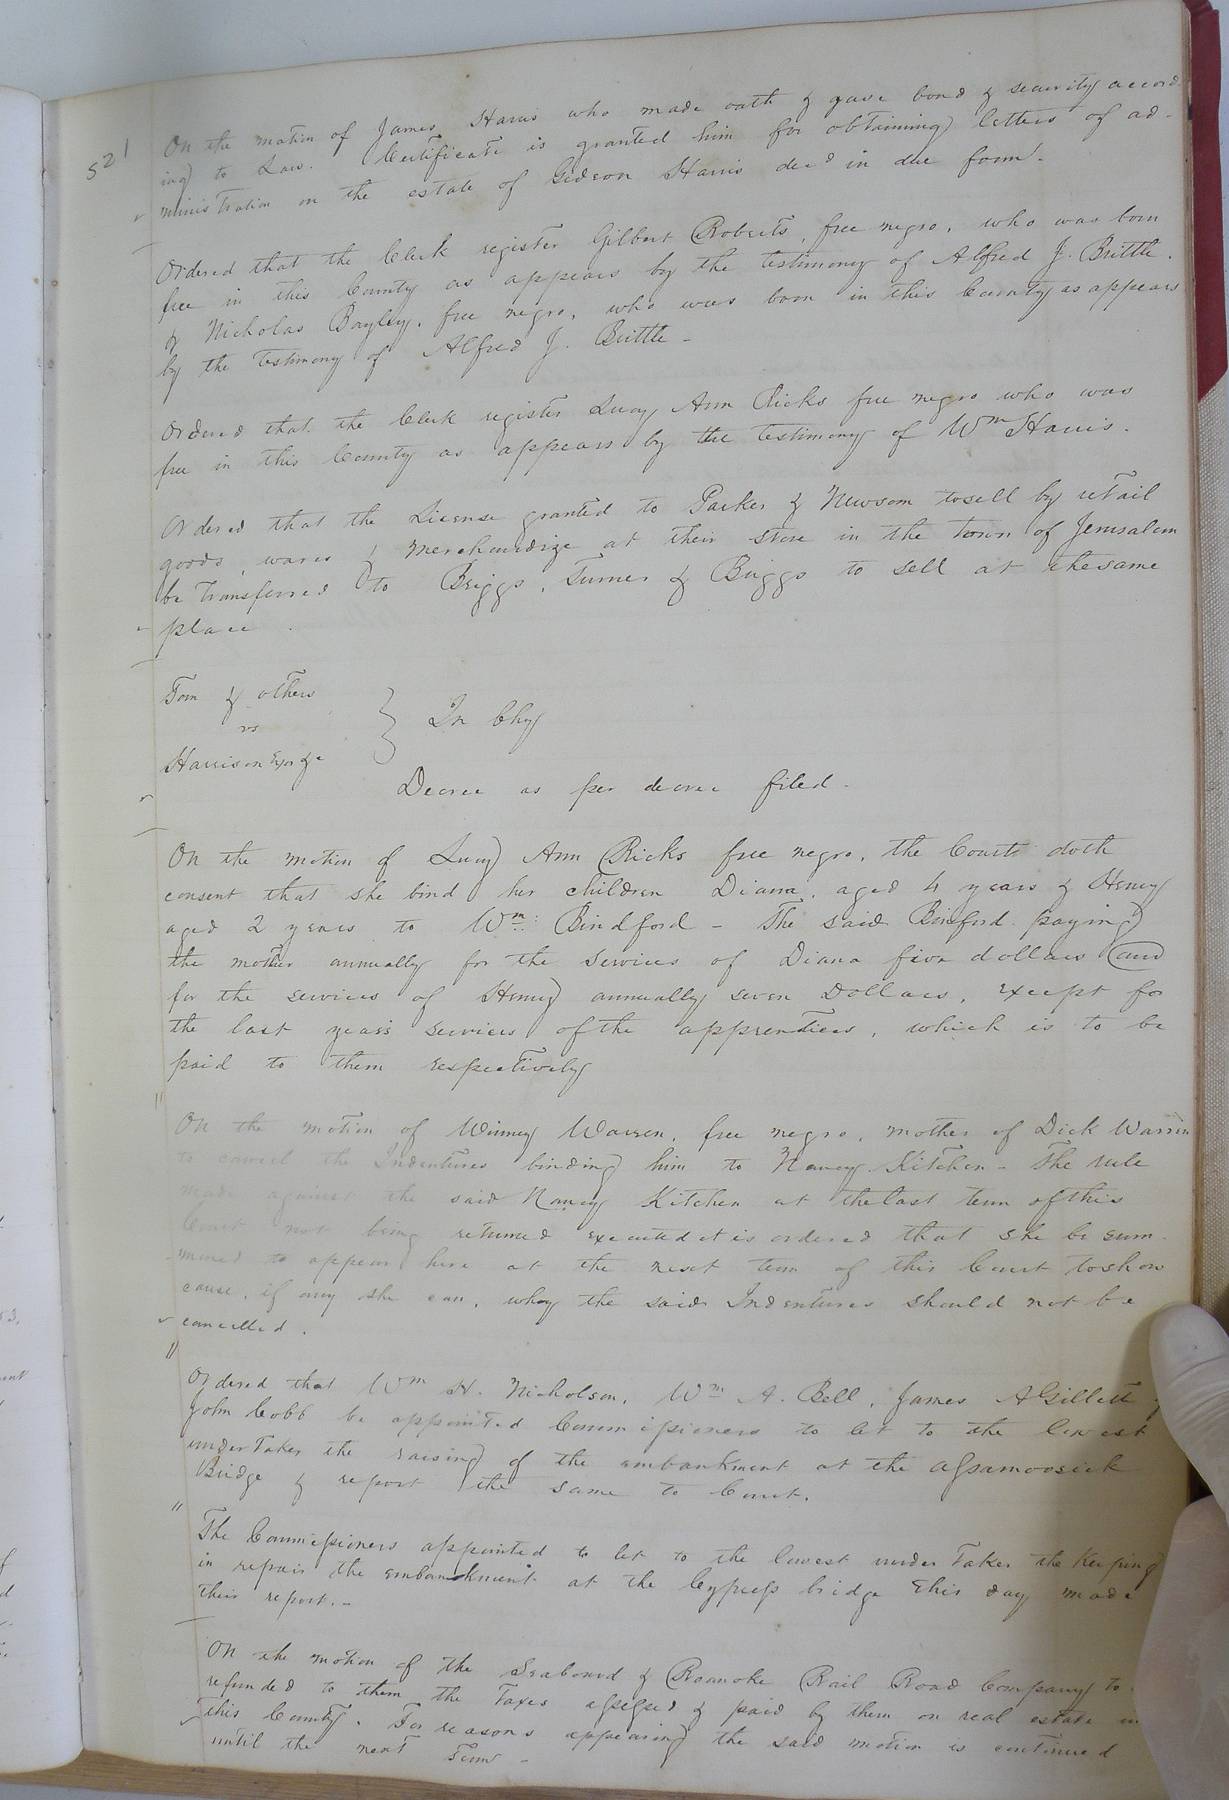 521
On the motion of James Harris who made oath & gave bond & security accord
ing to Law. Certificate is granted him for obtaining letters of ad-
ministration on the estate of Gideon Harris decd in due form.
Ordered that the Clerk register Gilbert Roberts, free negro, who was born
free in this County as appears by the testimony of Alfred J. Brittle.
& Nicholas Bayley, free negro, who was born in this County as appears
by the testimony of Alfred J. Brittle -
Ordered that the Clerk register Lucy Ann Ricks free negro who was
free in this County as appears by the testimony of Wm Harris.
Ordered that the License granted to Parker & Newsom to sell by retail
goods, wares & merchandize at their store in the town of Jerusalem
be transferred to Briggs, Turner & Briggs to sell at the same
place.
Tom & others
vs
Harrison Exor &c
} In Chy
Decree as per decree filed.
On the motion of Lucy Ann Ricks free negro, the Court doth
consent that she bind her children Diana, aged 4 years & Henry
aged 2 years to Wm: Bindford - The said Binford paying
the mother annually for the services of Diana five dollars and
for the services of Henry annually seven Dollars, except for
the last year's services of the apprentices, which is to be
paid to them respectively
On the motion of Winney Warren, free negro, mother of Dick Warren
to cancel the Indentures binding him to Nancy Kitchen - The rule
made against the said Nancy Kitchen at the last term of this
Court not being returned executed it is ordered that she be sum-
moned to appear here at the next term of this Court to show
cause, if any she can, why the said Indentures should not be
cancelled.
Ordered that Wm H. Nicholson, Wm A. Bell, James A Gillett &
John Cobb be appointed Commissioners to let to the lowest
undertaker the raising of the embankment at the Assamoosick
Bridge & report the same to Court.
The Commissioners appointed to let to the lowest undertaker the keeping
in repair the embankment at the Cypress bridge this day made
their report. -
On the motion of the Seaboard & Roanoke Rail Road Company to
refunded to them the taxes assessed & paid by them on real estate in
this County. For reasons appearing the said motion is continued
until the next Term -